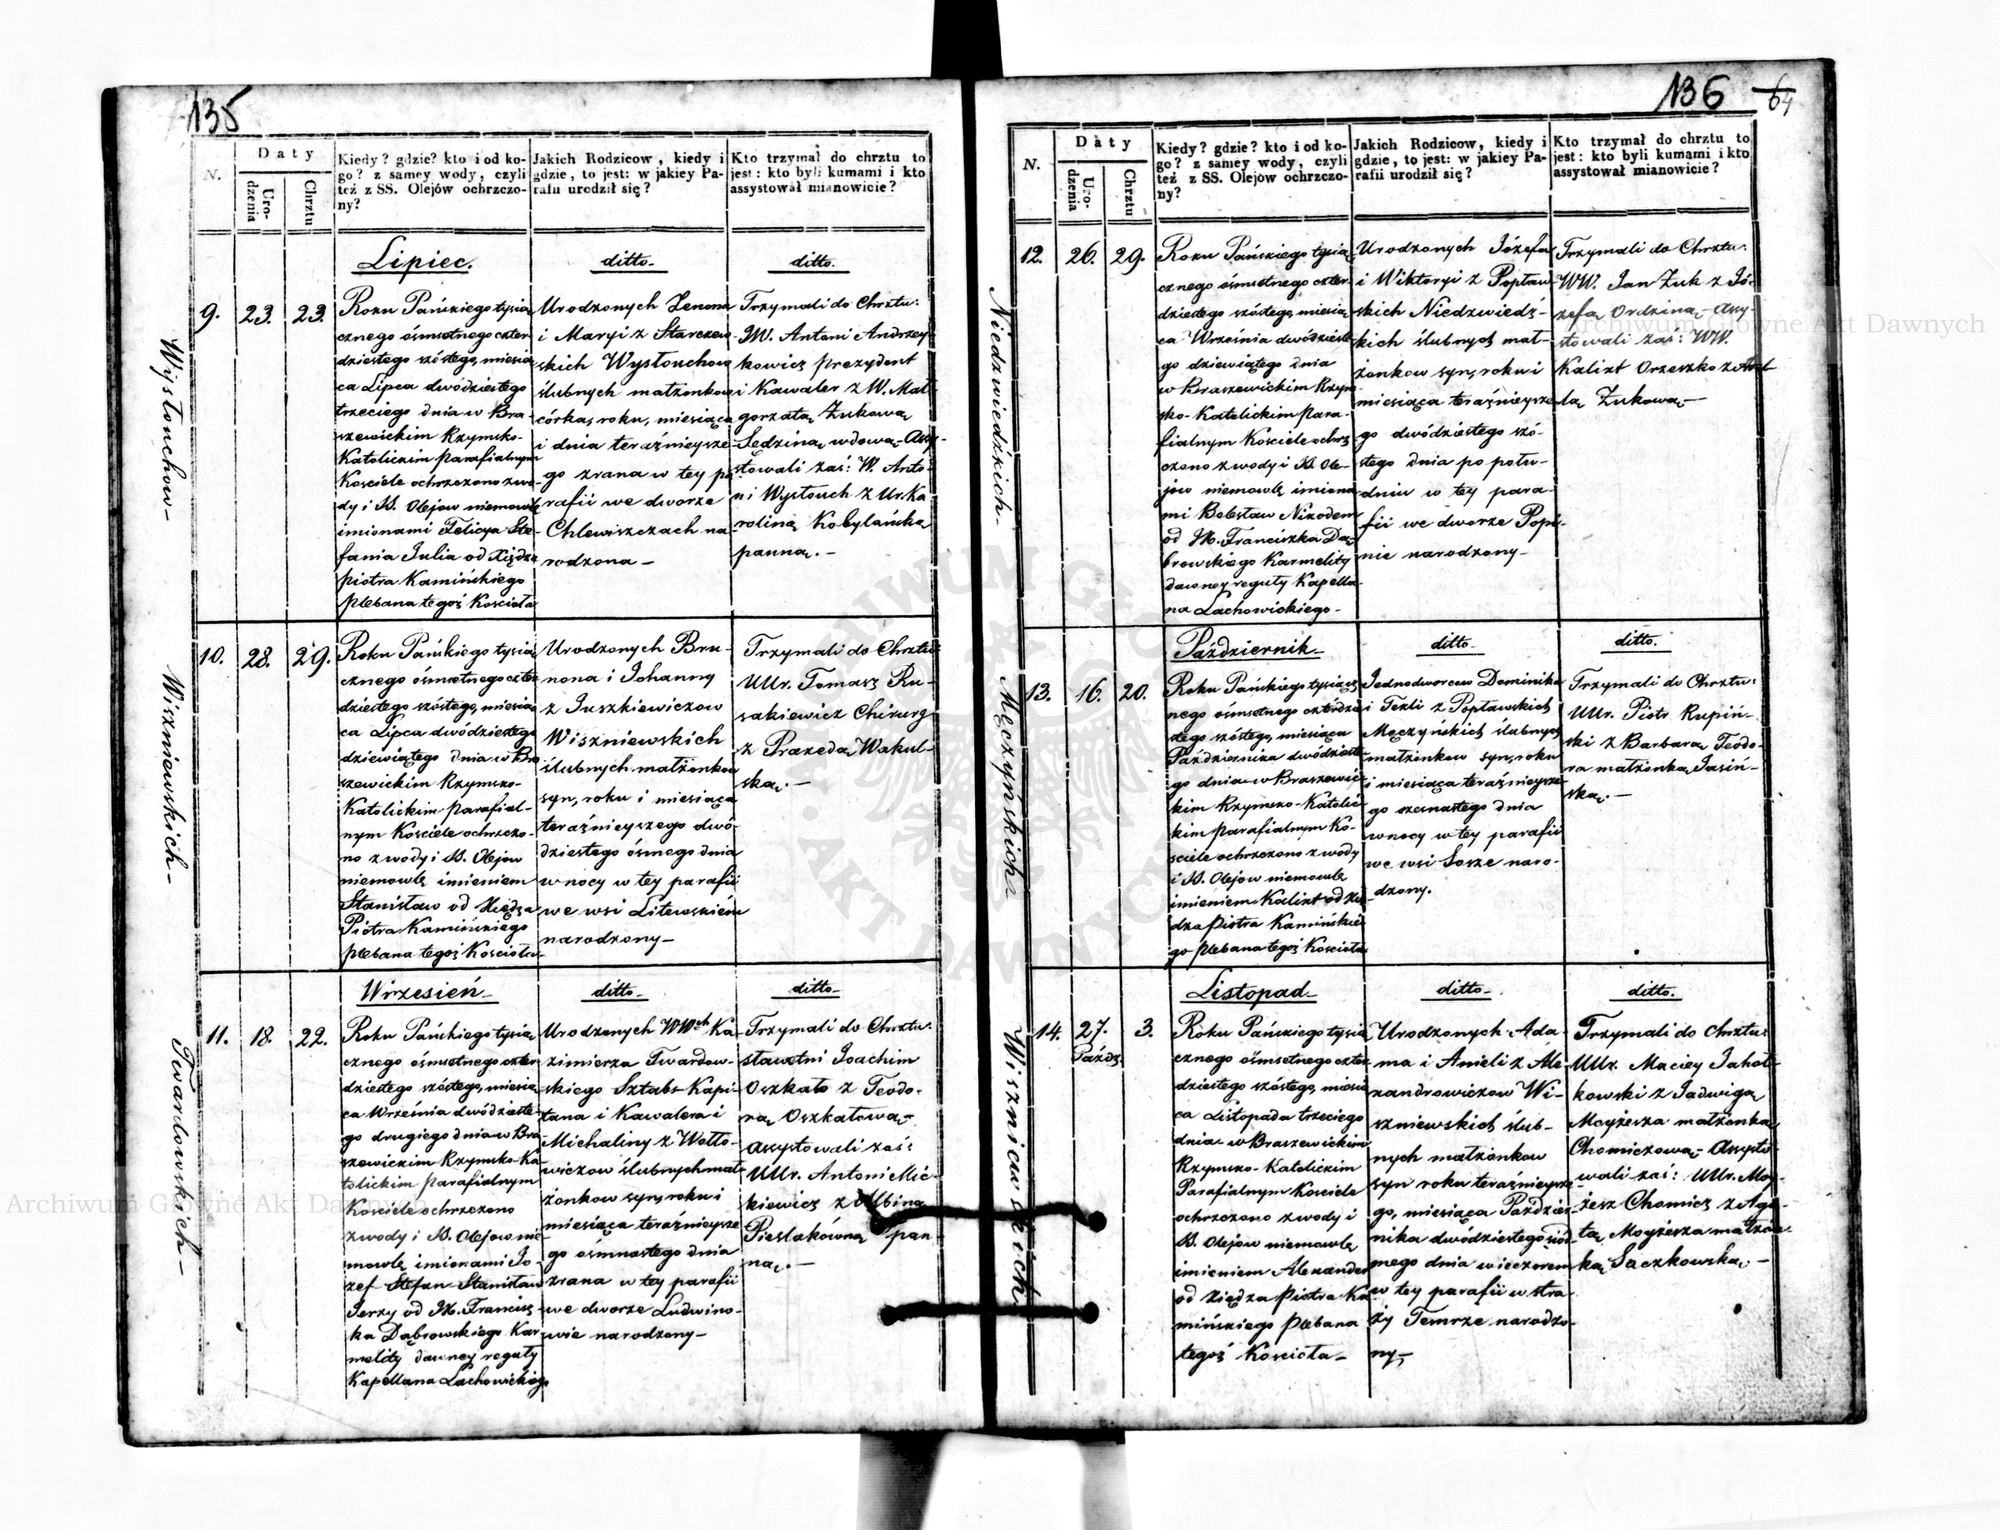 135
N.
Daty
Urodzenia
Chrztu
Kiedy? gdzie? kto i od ko-
go? z samey wody, czyli
też z SS. Olejów ochrzczo-
ny?
Jakich Rodzicow, kiedy i
gdzie, to jest: w jakiey Pa-
rafii urodził się?
Kto trzymał do chrztu to
jest: kto byli kumami i kto
assystował mianowicie?
Lipiec.
ditto
ditto.
Wysłouchow
9.
23.
23.
Roku Pańskiego tysią
cznego ośmsetnego czter
dziestego szóstego, miesią
ca Lipca dwódziestego
trzeciego dnia w Bra-
szewickim Rzymsko-
Katolickim Parafialnym
Kościele ochrzczono z wo-
dy i SS. Olejow niemowlę
imionami Felicya Ste-
fania Julia od Xiędza
Piotra Kamińskiego
Plebana tegoż Kościoła
Urodzonych Zenona
i Maryi z Starczew-
skich Wysłouchow
ślubnych małżonkow
córka, roku, miesiąca
i dnia teraźnieysze-
go zrana w tey pa
rafii we dworze
Chlewiszczach na
rodzona
Trzymali do Chrztu:
W. Antoni Andrzey-
kowicz Prezydent
i Kawaler z W. Mał
gorzatą Żukową
Sędziną wdową. Assy-
stowali zaś: W. Anto-
ni Wysłouch z Ur. Ka
roliną Kobylańską
panną.
Wiszniewskich
10.
28.
29.
Roku Pańskiego tysią
cznego ośmsetnego czter
dziestego szóstego, miesią
ca Lipca dwódziestego
dziewiątego dnia w Bra
szewickim Rzymsko-
Katolickim Parafial-
nym Kościele ochrzczo-
no z wody i SS. Olejow
niemowlę imieniem
Stanisław od Xiędza
Piotra Kamińskiego
Plebana tegoż Kościoła
Urodzonych Bru-
nona i Johanny
z Juszkiewiczow
Wiszniewskich
ślubnych małżonkow
syn, roku i miesiąca
teraźnieyszego dwó-
dziestego ósmego dnia
w nocy w tey parafii
we wsi Litewskiém
narodzony
Trzymali do Chrztu:
UUr. Tomasz Ru-
sakiewicz Chirurg
z Praxedą Wakul-
ską.
Wrzesień
ditto
ditto
Twardowskich
11.
18.
22.
Roku Pańskiego tysią
cznego ośmsetnego czter
dziestego szóstego, miesią
ca Września dwódzieste-
go drugiego dnia w Bra
szewickim Rzymsko-Ka-
tolickim Parafialnym
Kościele ochrzczono
z wody i SS. Olejow nie
mowlę imionami Jó-
zef Stefan Stanisław
Jerzy od JX. Francisz
ka Dąbrowskiego Kar
melity dawney reguły
Kapellana Lachowickiego
Urodzonych WWch Ka
zimierza Twardow-
skiego Sztabs-Kapi-
tana i Kawalera i
Michaliny z Wołło-
wiczow ślubnych mał-
żonkow syn, roku i
miesiąca teraźnieysze
go ośmnastego dnia
zrana w tey parafii
we dworze Ludwino-
wie narodzony
Trzymali do Chrztu:
sławetni Joachim
Oszkało z Teodo-
rą Oszkałową
Assystowali zaś:
UUr. Antoni Mic-
kiewicz z Albiną
Pieslakówną pan-
ną.
136
64
N.
Daty
Urodzenia
Chrztu
Kiedy? gdzie? kto i od ko-
go? z samey wody, czyli
też z SS. Olejow ochrzczo-
ny?
Jakich Rodzicow, kiedy i
gdzie, to jest: w jakiey Pa-
rafii urodził się?
Kto trzymał do chrztu to
jest: kto byli kumami i kto
assystował mianowicie?
Niedzwiedzkich
12.
26.
29.
Roku Pańskiego tysią
cznego ośmsetnego czter
dziestego szóstego, miesią
ca Września dwódzieste
go dziewiątego dnia
w Braszewickim Rzym
sko-Katolickim Para-
fialnym Kościele ochrz
czono z wody i SS. Ole-
jow niemowlę imiona
mi Bolesław Nikodem
od JX. Franciszka Dą-
browskiego Karmelity
dawney reguły Kapella
na Lachowickiego
Urodzonych Józefa
i Wiktoryi z Popław
skich Niedzwiedz-
kich ślubnych mał-
żonkow syn, roku i
miesiąca teraźnieysze-
go dwódziestego szó-
stego dnia po połu-
dniu w tey para-
fii we dworze Popi-
nie narodzony
Trzymali do Chrztu:
WW. Jan Żuk z Jó-
zefą Ordziną. Assy-
stowali zaś: WW.
Kalixt Orzeszko z
lą Żukową
Październik
ditto
ditto.
Męczyńskich
13.
16.
20.
Roku Pańskiego tysiącz
nego ośmsetnego czterdzie
stego szóstego, miesiąca
Października dwódzieste
go dnia w Braszewic
kim Rzymsko-Katolic
kim Parafialnym Ko-
ściele ochrzczono z wody
i SS. Olejow niemowlę
imieniem Kalixt od Xię
dza Piotra Kamińskie
go Plebana tegoż Kościoła
Jednodworcow Dominika
i Tekli z Popławskich
Męczyńskich ślubnych
małżonkow syn, roku
i miesiąca teraźnieysze
go szesnastego dnia
w nocy w tey parafii
we wsi Sosze naro-
dzony.
Trzymali do Chrztu:
UUr. Piotr Rupiń-
ski z Barbarą Teodo-
ra małżonką Jasiń-
ską.
Listopad
ditto
ditto.
Wiszniewskich
14.
27.
Paźdz.
3.
Roku Pańskiego tysią
cznego ośmsetnego czter
dziestego szóstego, miesią
ca Listopada trzeciego
dnia w Braszewickim
Rzymsko-Katolickim
Parafialnym Kościele
ochrzczono z wody i
SS. Olejow niemowlę
imieniem Alexander
od Xiędza Piotra Ka-
mińskiego Plebana
tegoż Kościoła
Urodzonych Ada-
ma i Anieli z Ale-
xandrowiczow Wi-
szniewskich ślub-
nych małżonkow
syn roku teraźnieysze
go, miesiąca Paździer-
nika dwódziestego siód-
mego dnia wieczorem
w tey parafii w stra
ży Temrze narodzo-
ny
Trzymali do Chrztu:
UUr. Maciey Jahoł-
kowski z Jadwigą
Moyżesza małżonką
Chomiczową. Assysto-
wali zaś: UUr. Moy-
żesz Chomicz z Aga-
tą Moyżesza małżon-
ką Saczkowską.
Archiwum Główne Akt Dawnych
Archiwum Główne Akt Dawnych
ARCHIWUM GŁÓWNE AKT DAWNYCH